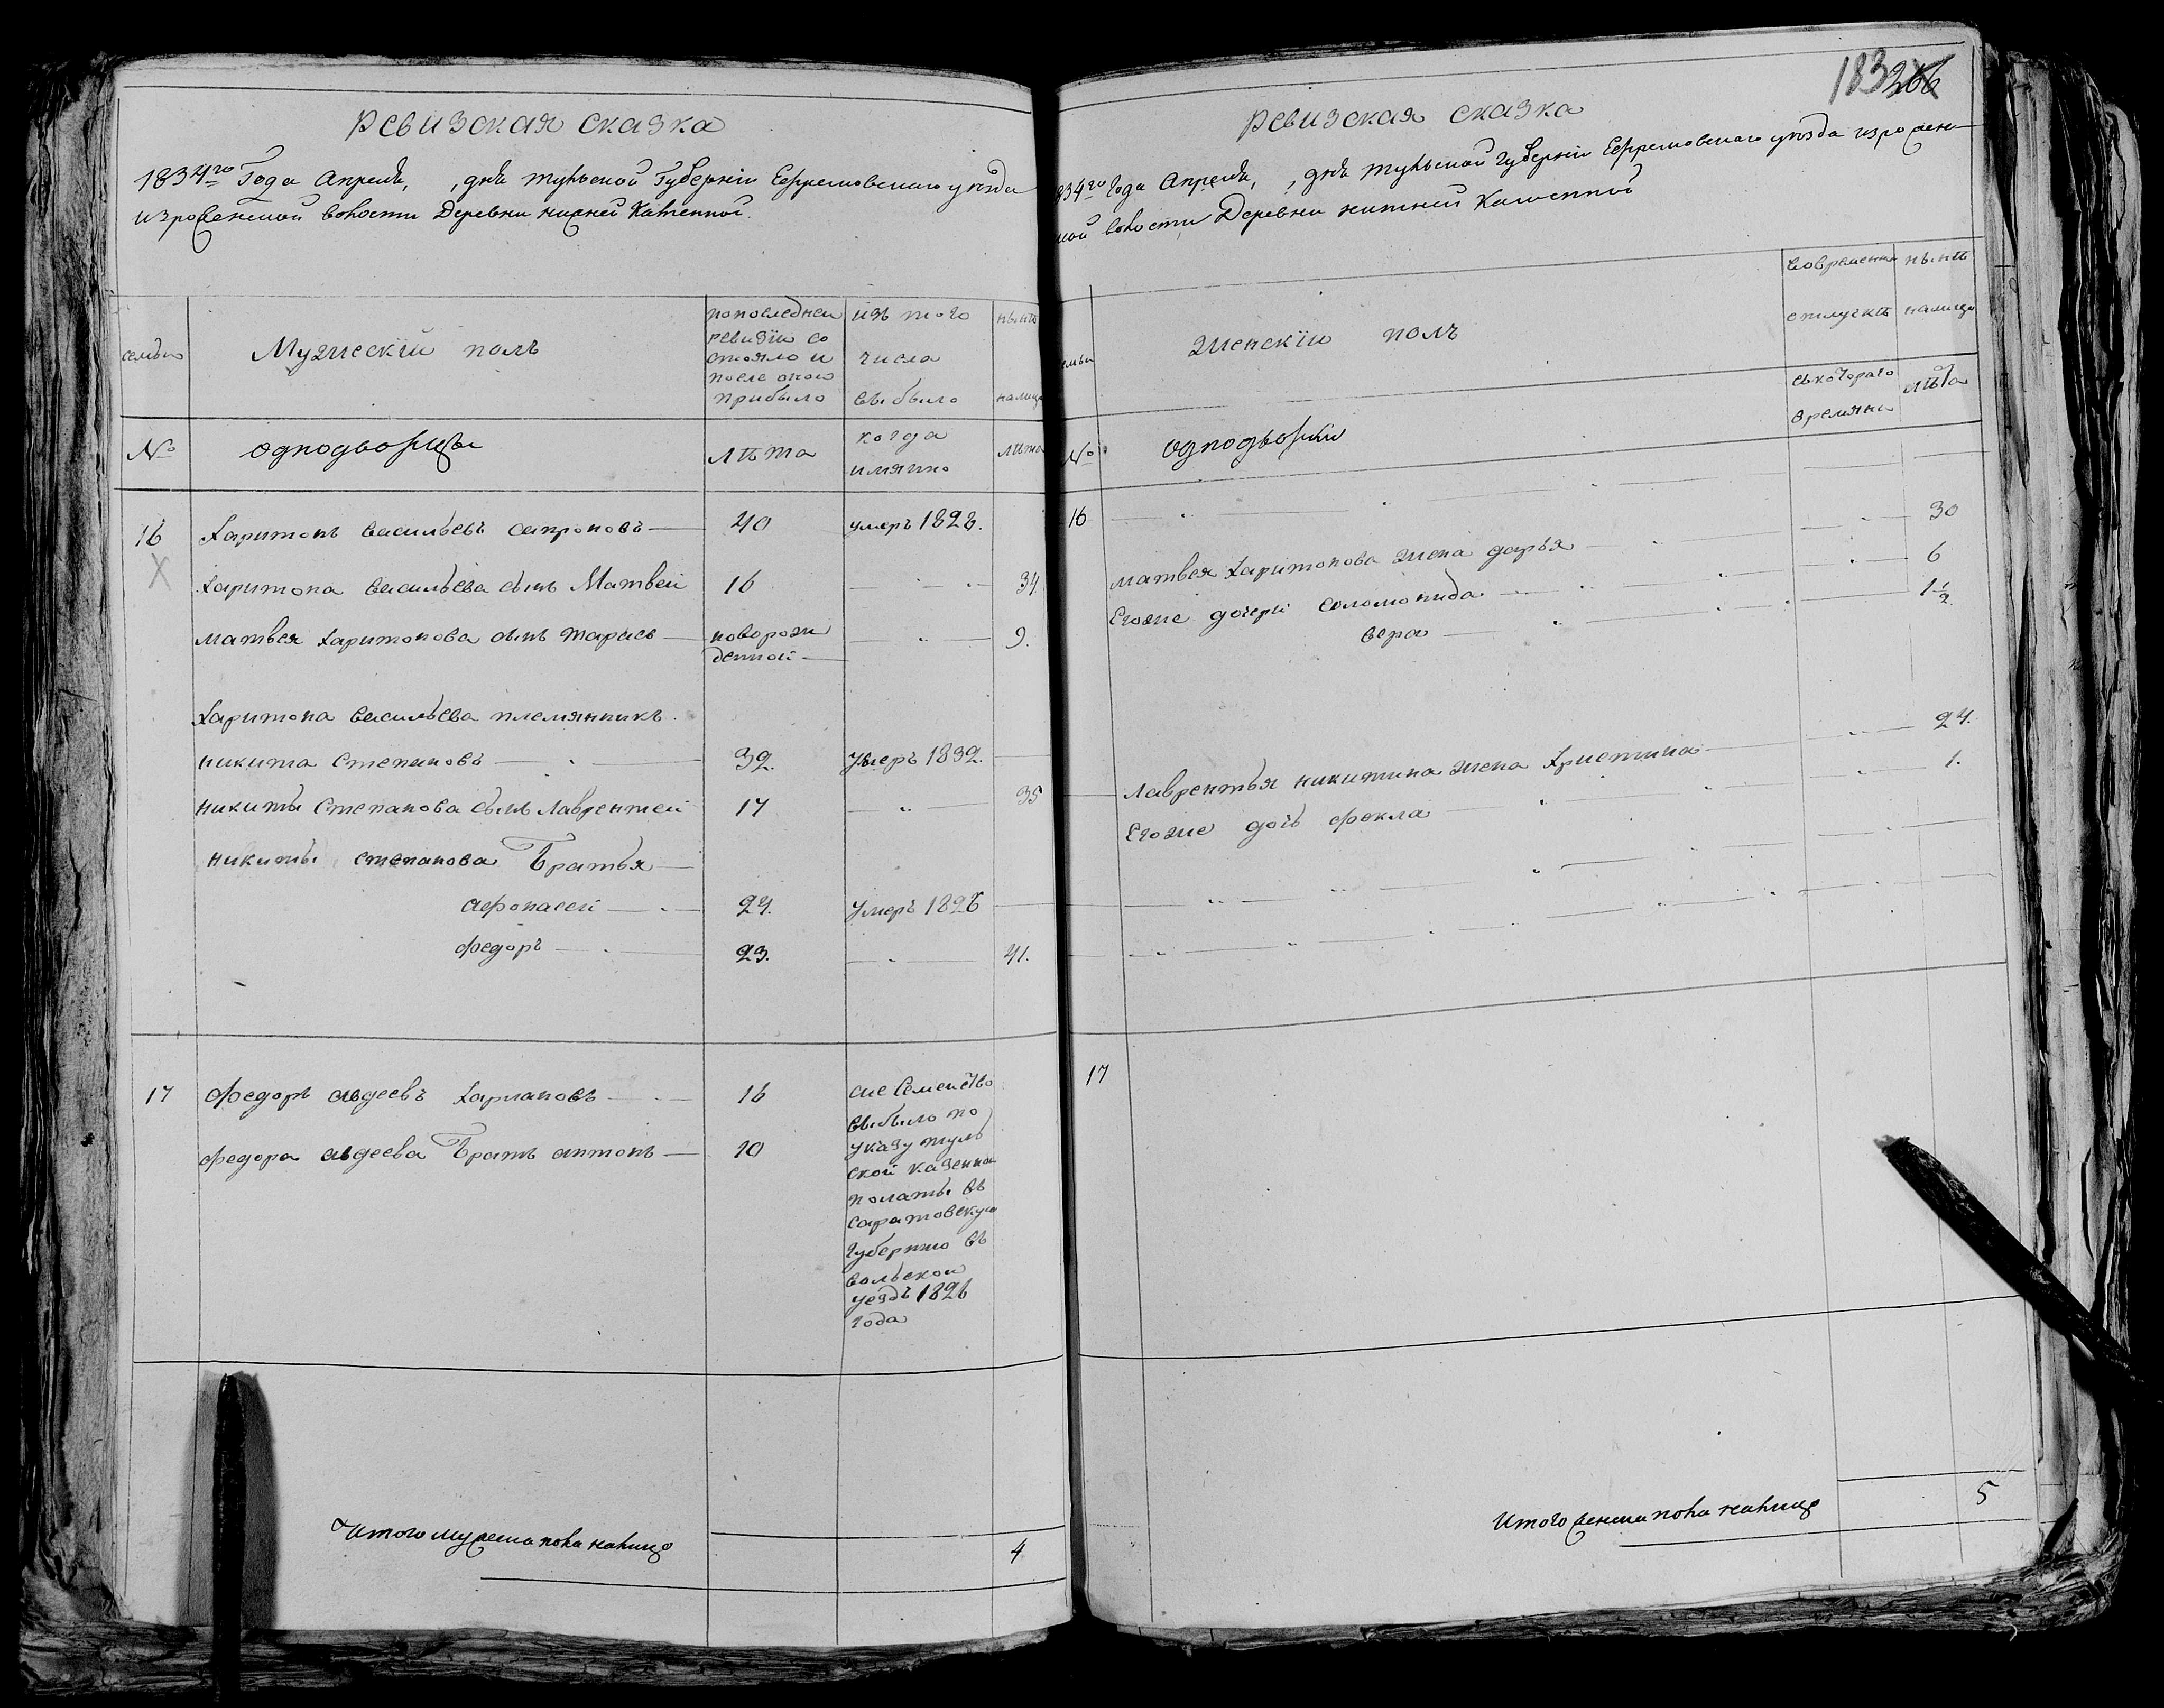 Ревизская сказка
1834го Года Апреля, , дня тульской Губернiи Ефремовского уезда
изроженской волости Деревни нижней Каменной.
семьи
Мужескiй полъ
по последней
ревизiи со
стояло и
после оной
прибыло
изъ того
числа
выбыло
ныне
налицо
№
однодворцы
лѣта
когда
имянно
лѣта
16
Харитонъ васильевъ сапроновъ
40
умеръ 1828.
Харитона васильева сынъ Матвей
16
34
матвея харитонова сынъ тарасъ
новорож
денной
9.
Харитона васильева племянникъ
никита степановъ
32.
умеръ 1832.
никиты степанова сынъ лаврентей
17
35
никиты степанова Братья
афонасей
24.
умеръ 1826
федоръ
23.
41.
17
федоръ авдеевъ
16
федора авдеева Братъ антонъ
10
сие семейство
выбыло по
указу туль
ской казенной
полаты въ
саратовскую
губернию въ
вольской
уездъ 1826
года
Итого мужеска пола налицо
4
183
266
Ревизская сказка
834го года Апреля, , дня тульской губернiи Ефремовского уезда изрожен
ской волости Деревни нижней Каменной
семьи
женскiй полъ
во временной
отлучкѣ
нынѣ
налицо
съ котораго
времяни
лѣта
№
однодворки
16
матвея харитонова жена дарья
30
Егоже дочери соломонида
6
вера
1 1/2
лаврентья никитина жена христина
24.
Егоже дочь фекла
1.
17
Итого женска пола налицо
5